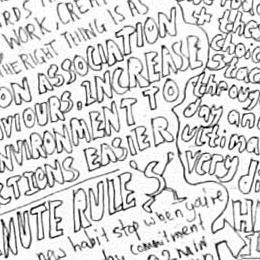 WORK, CREAT
THE RIGHT THING IS AS
ON ASSOCIATION
VIOURS, INCREASE
NVIRONMENT TO
CTIONS EASIER
NUTE RULE
new habit
stop when you're
by commitment
2-MIN
+ the
choi
Stac
throu
day an
ultima
very di
HA